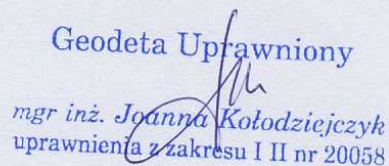 Geodeta Uprawniony
mgr inż. Joanna Kołodziejczyk
uprawnienia z zakresu I II nr 20058